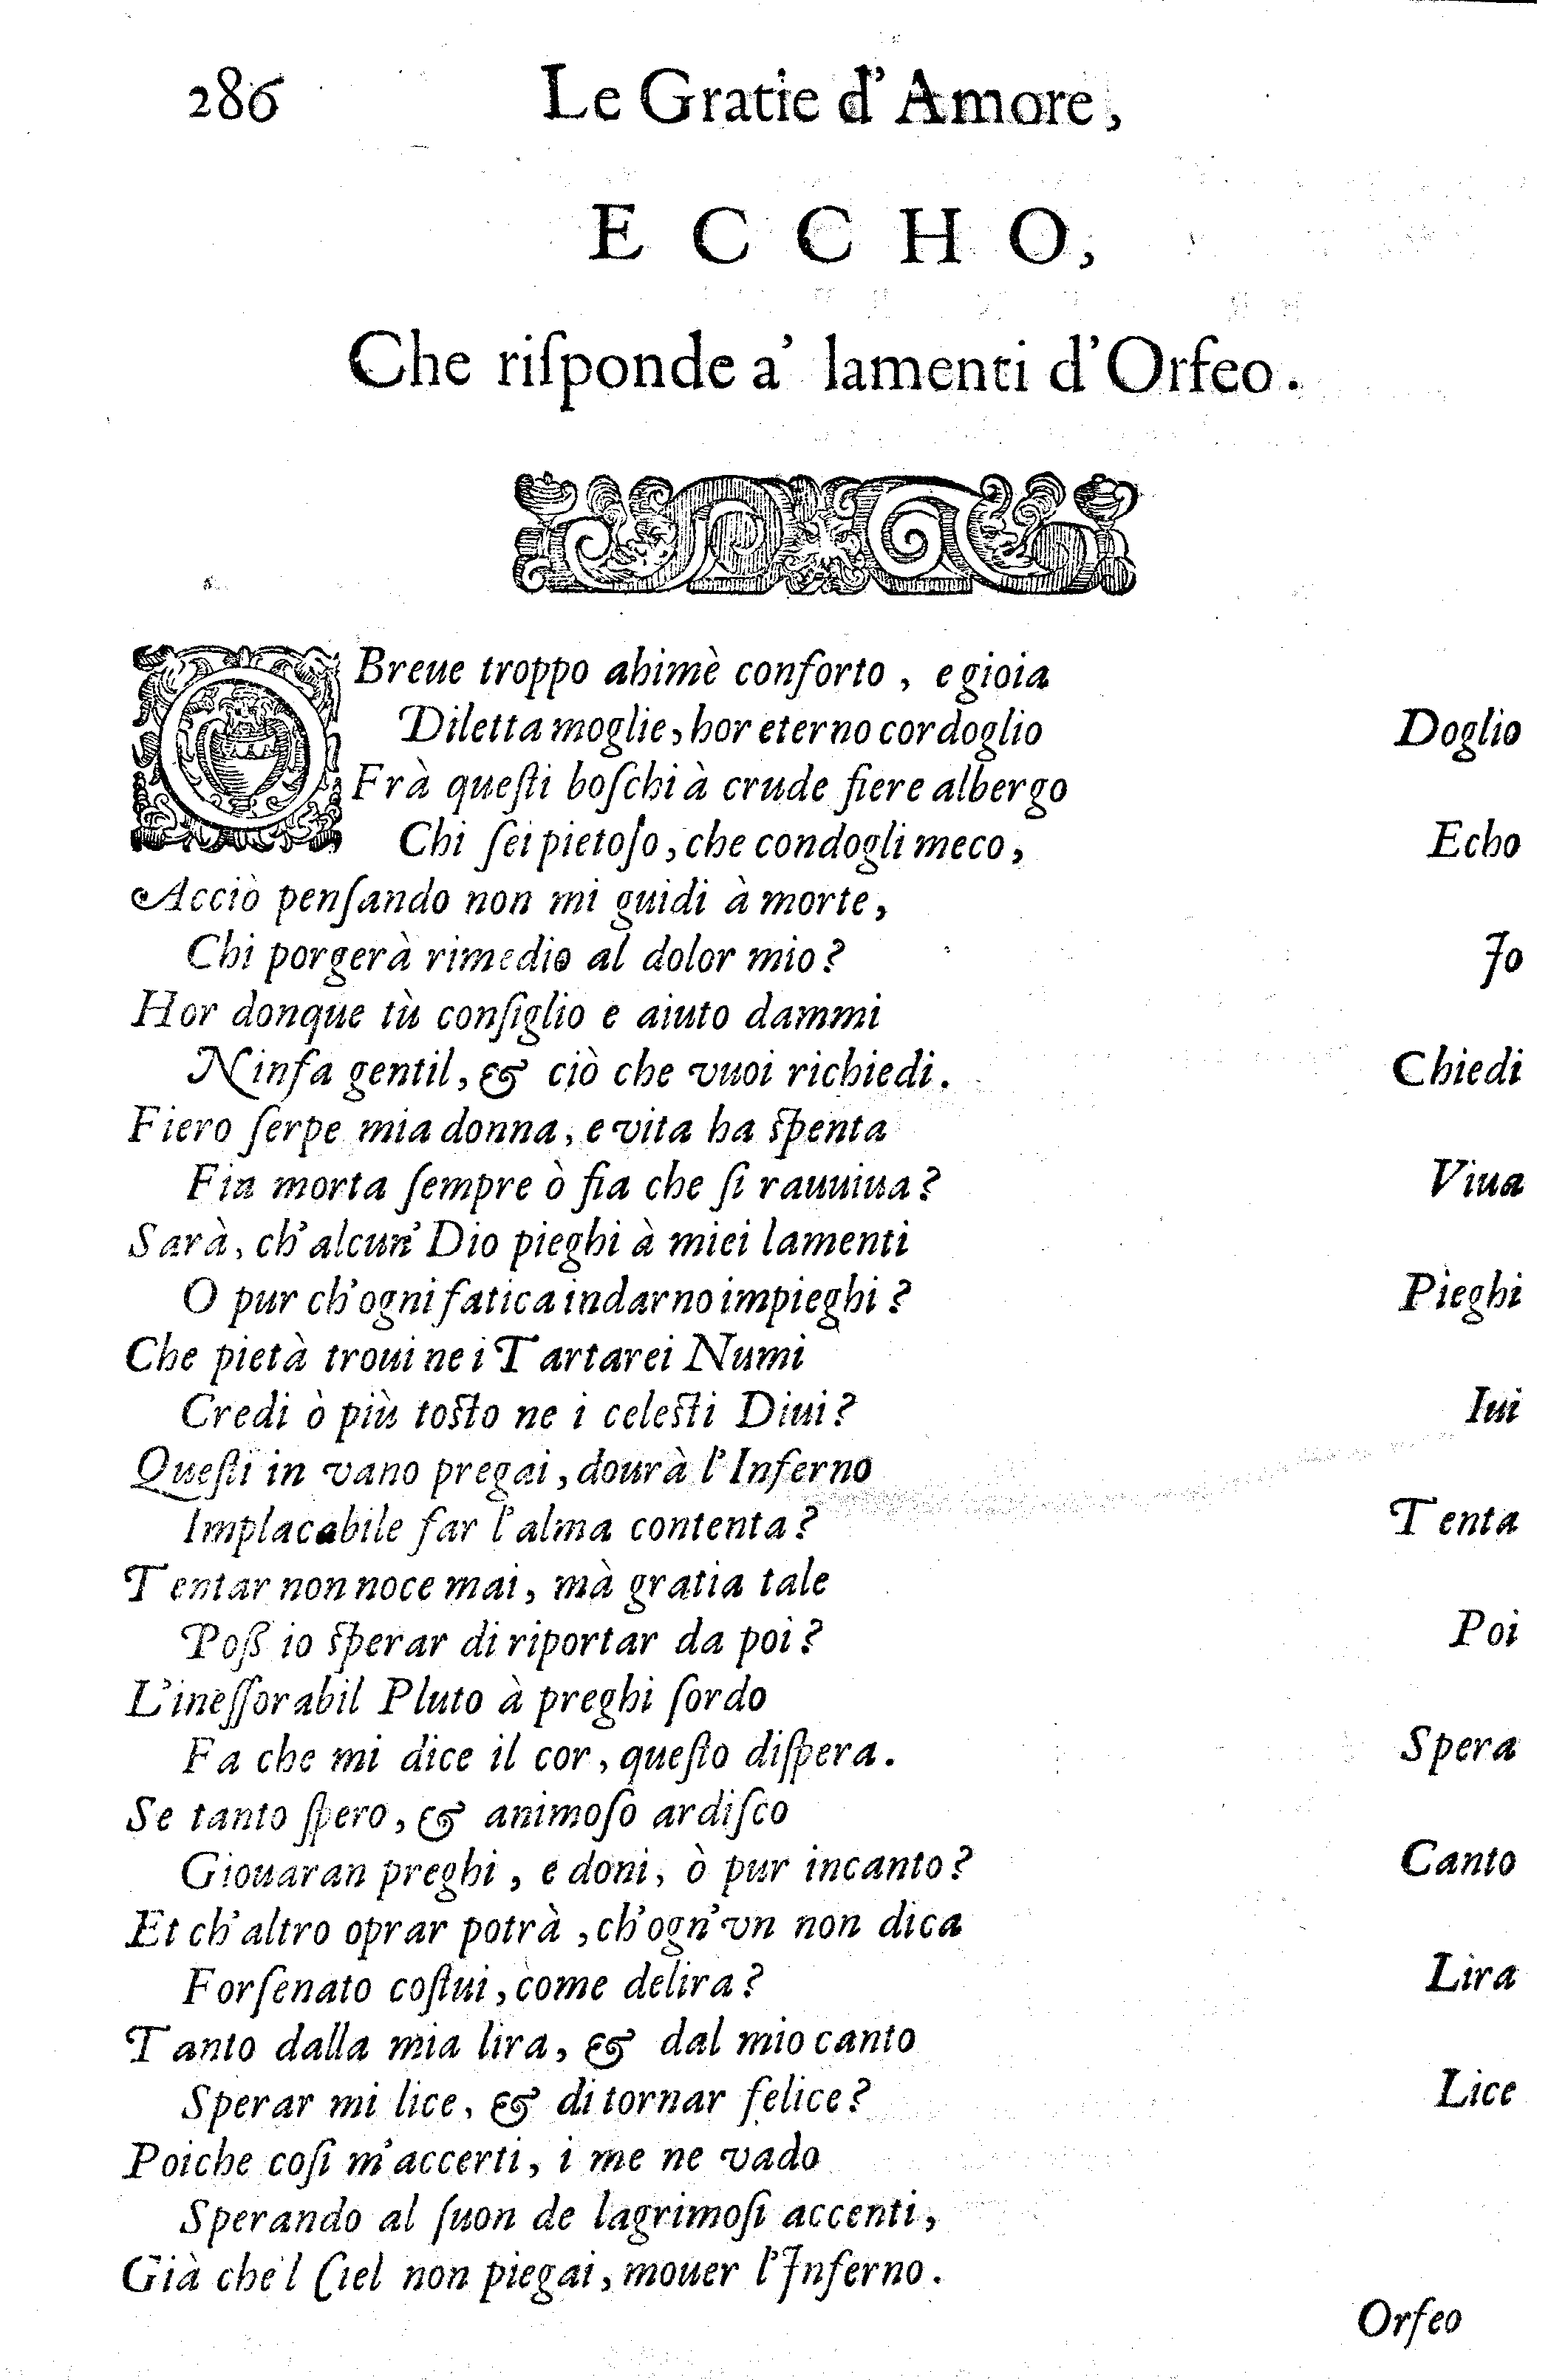 286 Le Gratie d'Amore,
ECCHO,
Che riſponde a' lamenti d'Orfeo.
O Breue troppo ahimè conforto, e gioia
Diletta moglie, hor eterno cordoglio Doglio
Frà queſti boſchi à crude fiere albergo
Chi ſei pietoſo, che condogli meco, Echo
Acciò penſando non mi guidi à morte,
Chi porgerà rimedio al dolor mio? Jo
Hor donque tù conſiglio e aiuto dammi
Ninfa gentil, & ciò che vuoi richiedi. Chiedi
Fiero ſerpe mia donna, e vita ha ſpenta
Fia morta ſempre ò fia che ſi rauuiua? Viua
Sarà, ch'alcun' Dio pieghi à miei lamenti
O pur ch'ogni fatica indarno impieghi? Pieghi
Che pietà troui ne i Tartarei Numi
Credi ò più toſto ne i celeſti Diui? Iui
Queſti in vano pregai, dourà l'Inferno
Implacabile far l'alma contenta? Tenta
Tentar non noce mai, mà gratia tale
Poß io ſperar di riportar da poi? Poi
L'ineſſorabil Pluto à preghi ſordo
Fa che mi dice il cor, queſto diſpera. Spera
Se tanto ſpero, & animoſo ardiſco
Giouaran preghi, e doni, ò pur incanto? Canto
Et ch'altro oprar potrà, ch'ogn'vn non dica
Forſenato coſtui, come delira? Lira
Tanto dalla mia lira, & dal mio canto
Sperar mi lice, & di tornar felice? Lice
Poiche coſi m'accerti, i me ne vado
Sperando al ſuon de lagrimoſi accenti,
Già che'l Ciel non piegai, mouer l'Jnferno.
Orfeo